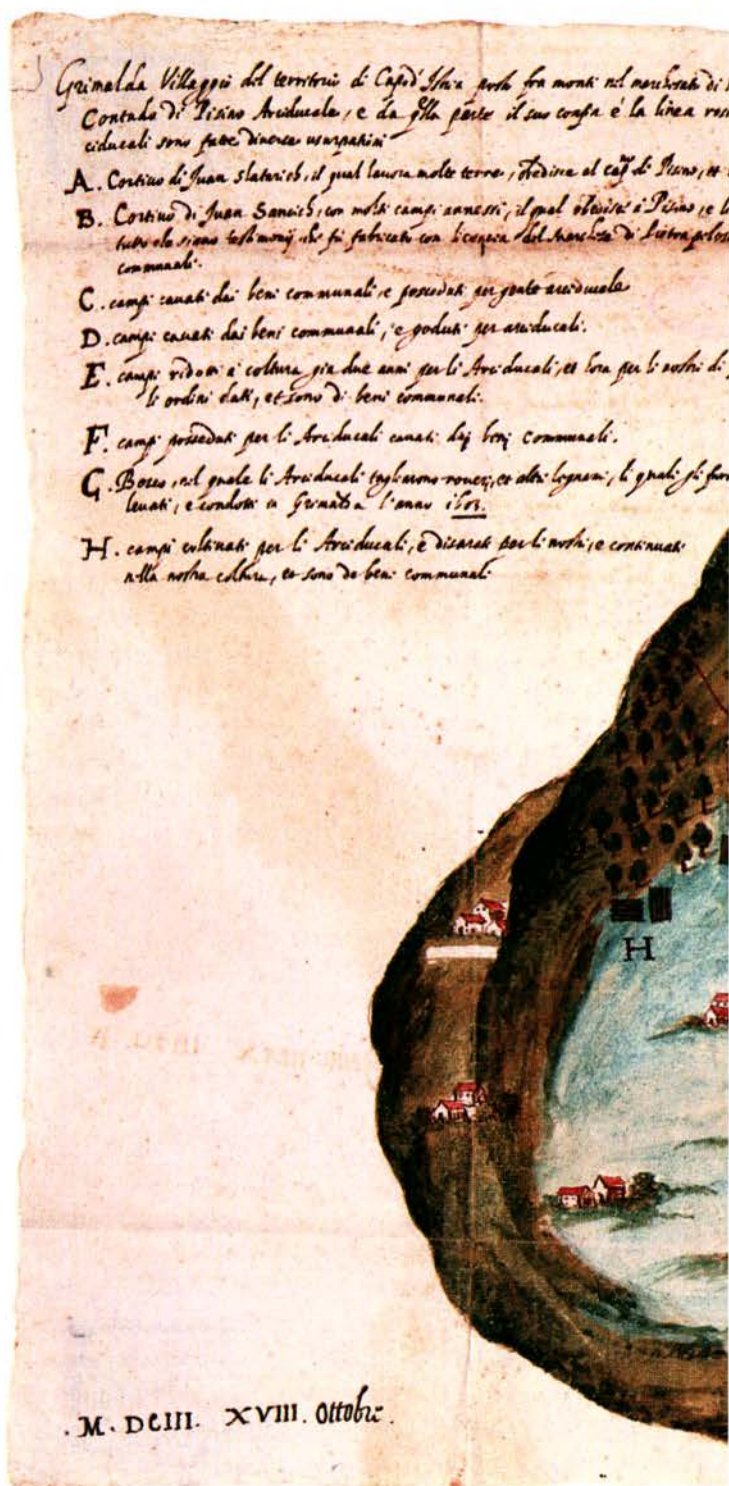 Grimalda Villaggio del territorio di Capod'Istria posto fra monti nel marchesato di
Contado di Pisino Arciducale, e da q̃lla parte il suo confin é la linea ross
ciducali sono fatte diverse usurpationi
A. Cortivo di Juan Slatarich, il qual lavora molte terre, obedisce al capº di Pisino, et
B. Cortivo di Juan Sancich, con molti campi annessi, il qual obedisce à Pisino, e
tutto che siano testimonij che fu fabricato con licenza del Marchese di Pietrapelosa
communali.
C. campi cavati dai beni communali, e posseduti per gente arciducale
D. campi cavati dai beni communali, e goduti per arciducali.
E. campi ridotti à coltura gia due anni per li Arciducali, et hora per li nostri di
li ordini dati, et sono di beni communali.
F. campi posseduti per li Arciducali cavati daj benj communali.
G. Bosco, nel quale li Arciducali tagliarono roveri, et altri legnami, li quali gli furo
levati, e condotti in Grimalda l'anno 1603.
H. campi coltivati per li Arciducali, e disarati per li nostri, e continuati
nella nostra coltura, et sono de beni communali
H
. M. DCIII. XVIII. Ottobre.